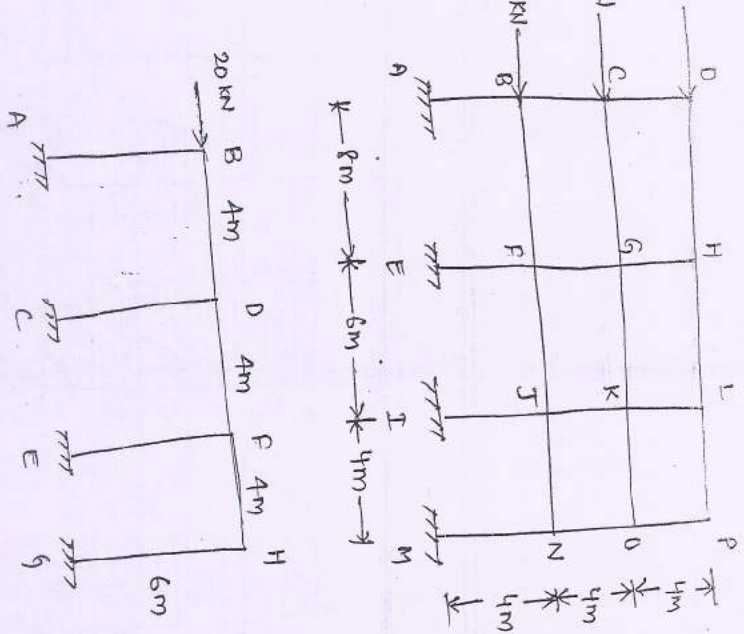 D H L P
C G K O
KN B F J N
A E I M
8m 6m 4m
4m 4m 4m
20 KN B 4m D 4m F 4m H
6m
A C E G